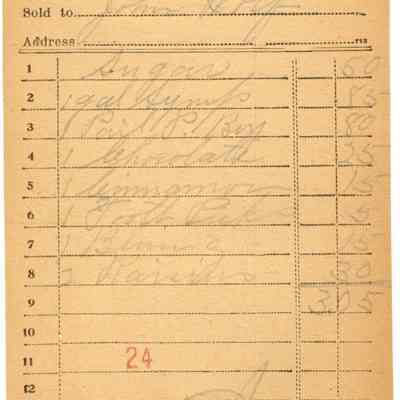 Sold to John
Address
1 Sugar 50
2 1 gal Syrup 85
3 1 Pail P. 80
4 1 Chocolate 25
5 1 Cinnamon 15
6 1 Tooth Picks 5
7 1 15
8 2 Raisins 30
9 3.05
10
11 24
12